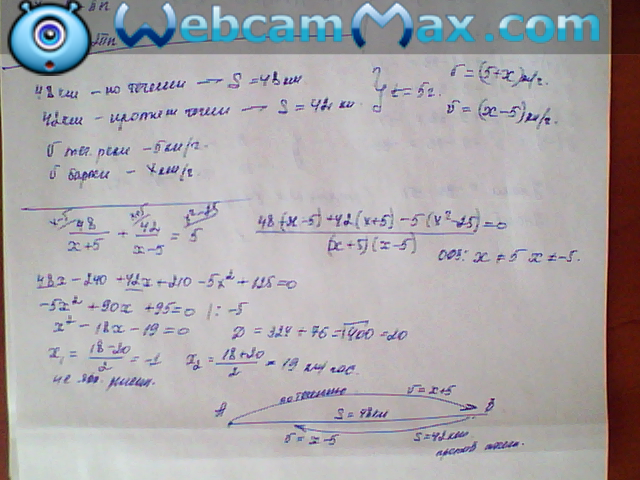 WebcamMax.com
2πn
48км - по течении → S = 48км
42км - против течен → S = 42 км
} t = 5г.
υ = (5+x)км/г.
υ = (x-5)км/г.
υ теч. реки - 5км/г.
υ барки - xкм/г.
x-5 48/x+5 + x+5 42/x-5 = x²-25 5
48(x-5)+42(x+5)-5(x²-25)=0
(x+5)(x-5)
ОДЗ: x ≠ 5 x ≠ -5.
48x - 240 + 42x + 210 - 5x² + 125 = 0
-5x² + 90x + 95 = 0 |: -5
x² - 18x - 19 = 0 D = 324 + 76 = √400 = 20
x₁ = 18-20/2 = -1 x₂ = 18+20/2 = 19 км/час.
не явл. решен.
по течению υ = x+5
A S = 48км B
υ = x-5 S = 42км
против течен.